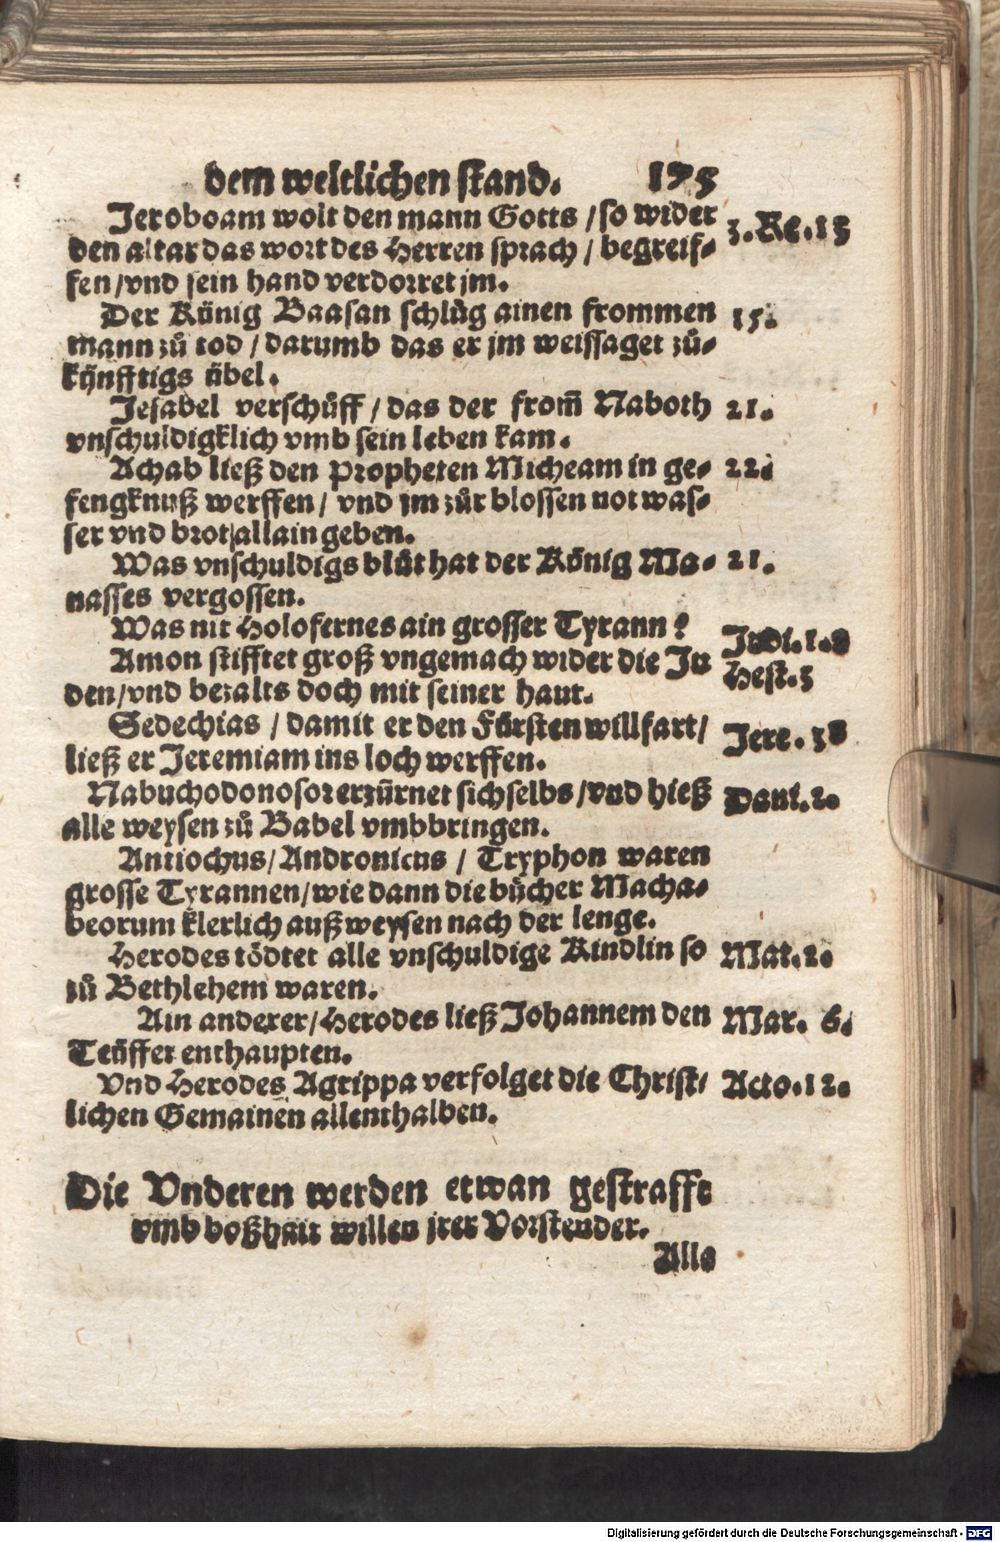 dem weltlichen stand. 175
Jeroboam wolt den mann Gotts / so wider 3. Re. 13
den altar das wort des Herren sprach / begreif-
fen / vnd sein hand verdorret jm.
Der König Baasan schlůg ainen frommen 15.
mann zů tod / darumb das er jm weissaget zů-
künfftigs übel.
Jesabel verschůff / das der from̄ Naboth 21.
vnschuldigklich vmb sein leben kam.
Achab ließ den Propheten Micheam in ge- 22.
fengknuß werffen / vnd jm zůr blossen not was-
ser vnd brot allain geben.
Was vnschuldigs blůt hat der König Ma- 21.
nasses vergossen.
Was nit Holofernes ain grosser Tyrann? Judi. 1. 8
Amon stifftet groß vngemach wider die Ju Hest. 3
den / vnd bezalts doch mit seiner haut.
Sedechias / damit er den Fürsten willfart / Jere. 38
ließ er Jeremiam ins loch werffen.
Nabuchodonosor erzürnet sich selbs / vnd hieß Dani. 2.
alle weysen zů Babel vmbbringen.
Antiochus / Andronicus / Tryphon waren
grosse Tyrannen / wie dann die bücher Macha-
beorum klerlich auß weysen nach der lenge.
Herodes tödtet alle vnschuldige Kindlin so Mat. 2.
zů Bethlehem waren.
Ain anderer / Herodes ließ Johannem den Mar. 6.
Teüffer enthaupten.
Vnd Herodes Agrippa verfolget die Christ- Acto. 12.
lichen Gemainen allenthalben.
Die Vnderen werden etwan gestrafft
vmb boßhait willen jrer Vorstender.
Alle
Digitalisierung gefördert durch die Deutsche Forschungsgemeinschaft - DFG